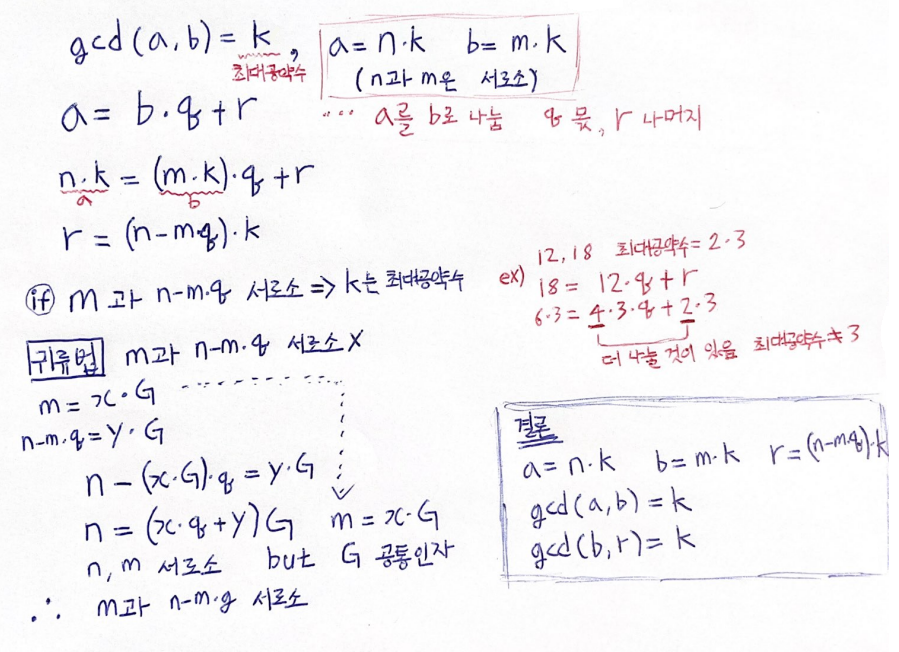 gcd(a,b) = k, a = n·k b = m·k
최대공약수 (n과 m은 서로소)
a = b·q + r
··· a를 b로 나눔 q 몫, r 나머지
n·k = (m·k)·q + r
a b
r = (n-mq)·k
if m과 n-m·q 서로소 => k는 최대공약수
ex) 12, 18 최대공약수 = 2·3
18 = 12·q + r
6·3 = 4·3·q + 2·3
더 나눌 것이 있음 최대공약수 ≠ 3
귀류법 m과 n-m·q 서로소 X
m = x·G
n-m·q = y·G
n - (x·G)·q = y·G
n = (x·q + y)G m = x·G
n, m 서로소 but G 공통인자
∴ m과 n-m·q 서로소
결론
a = n·k b = m·k r = (n-m·q)·k
gcd(a,b) = k
gcd(b,r) = k